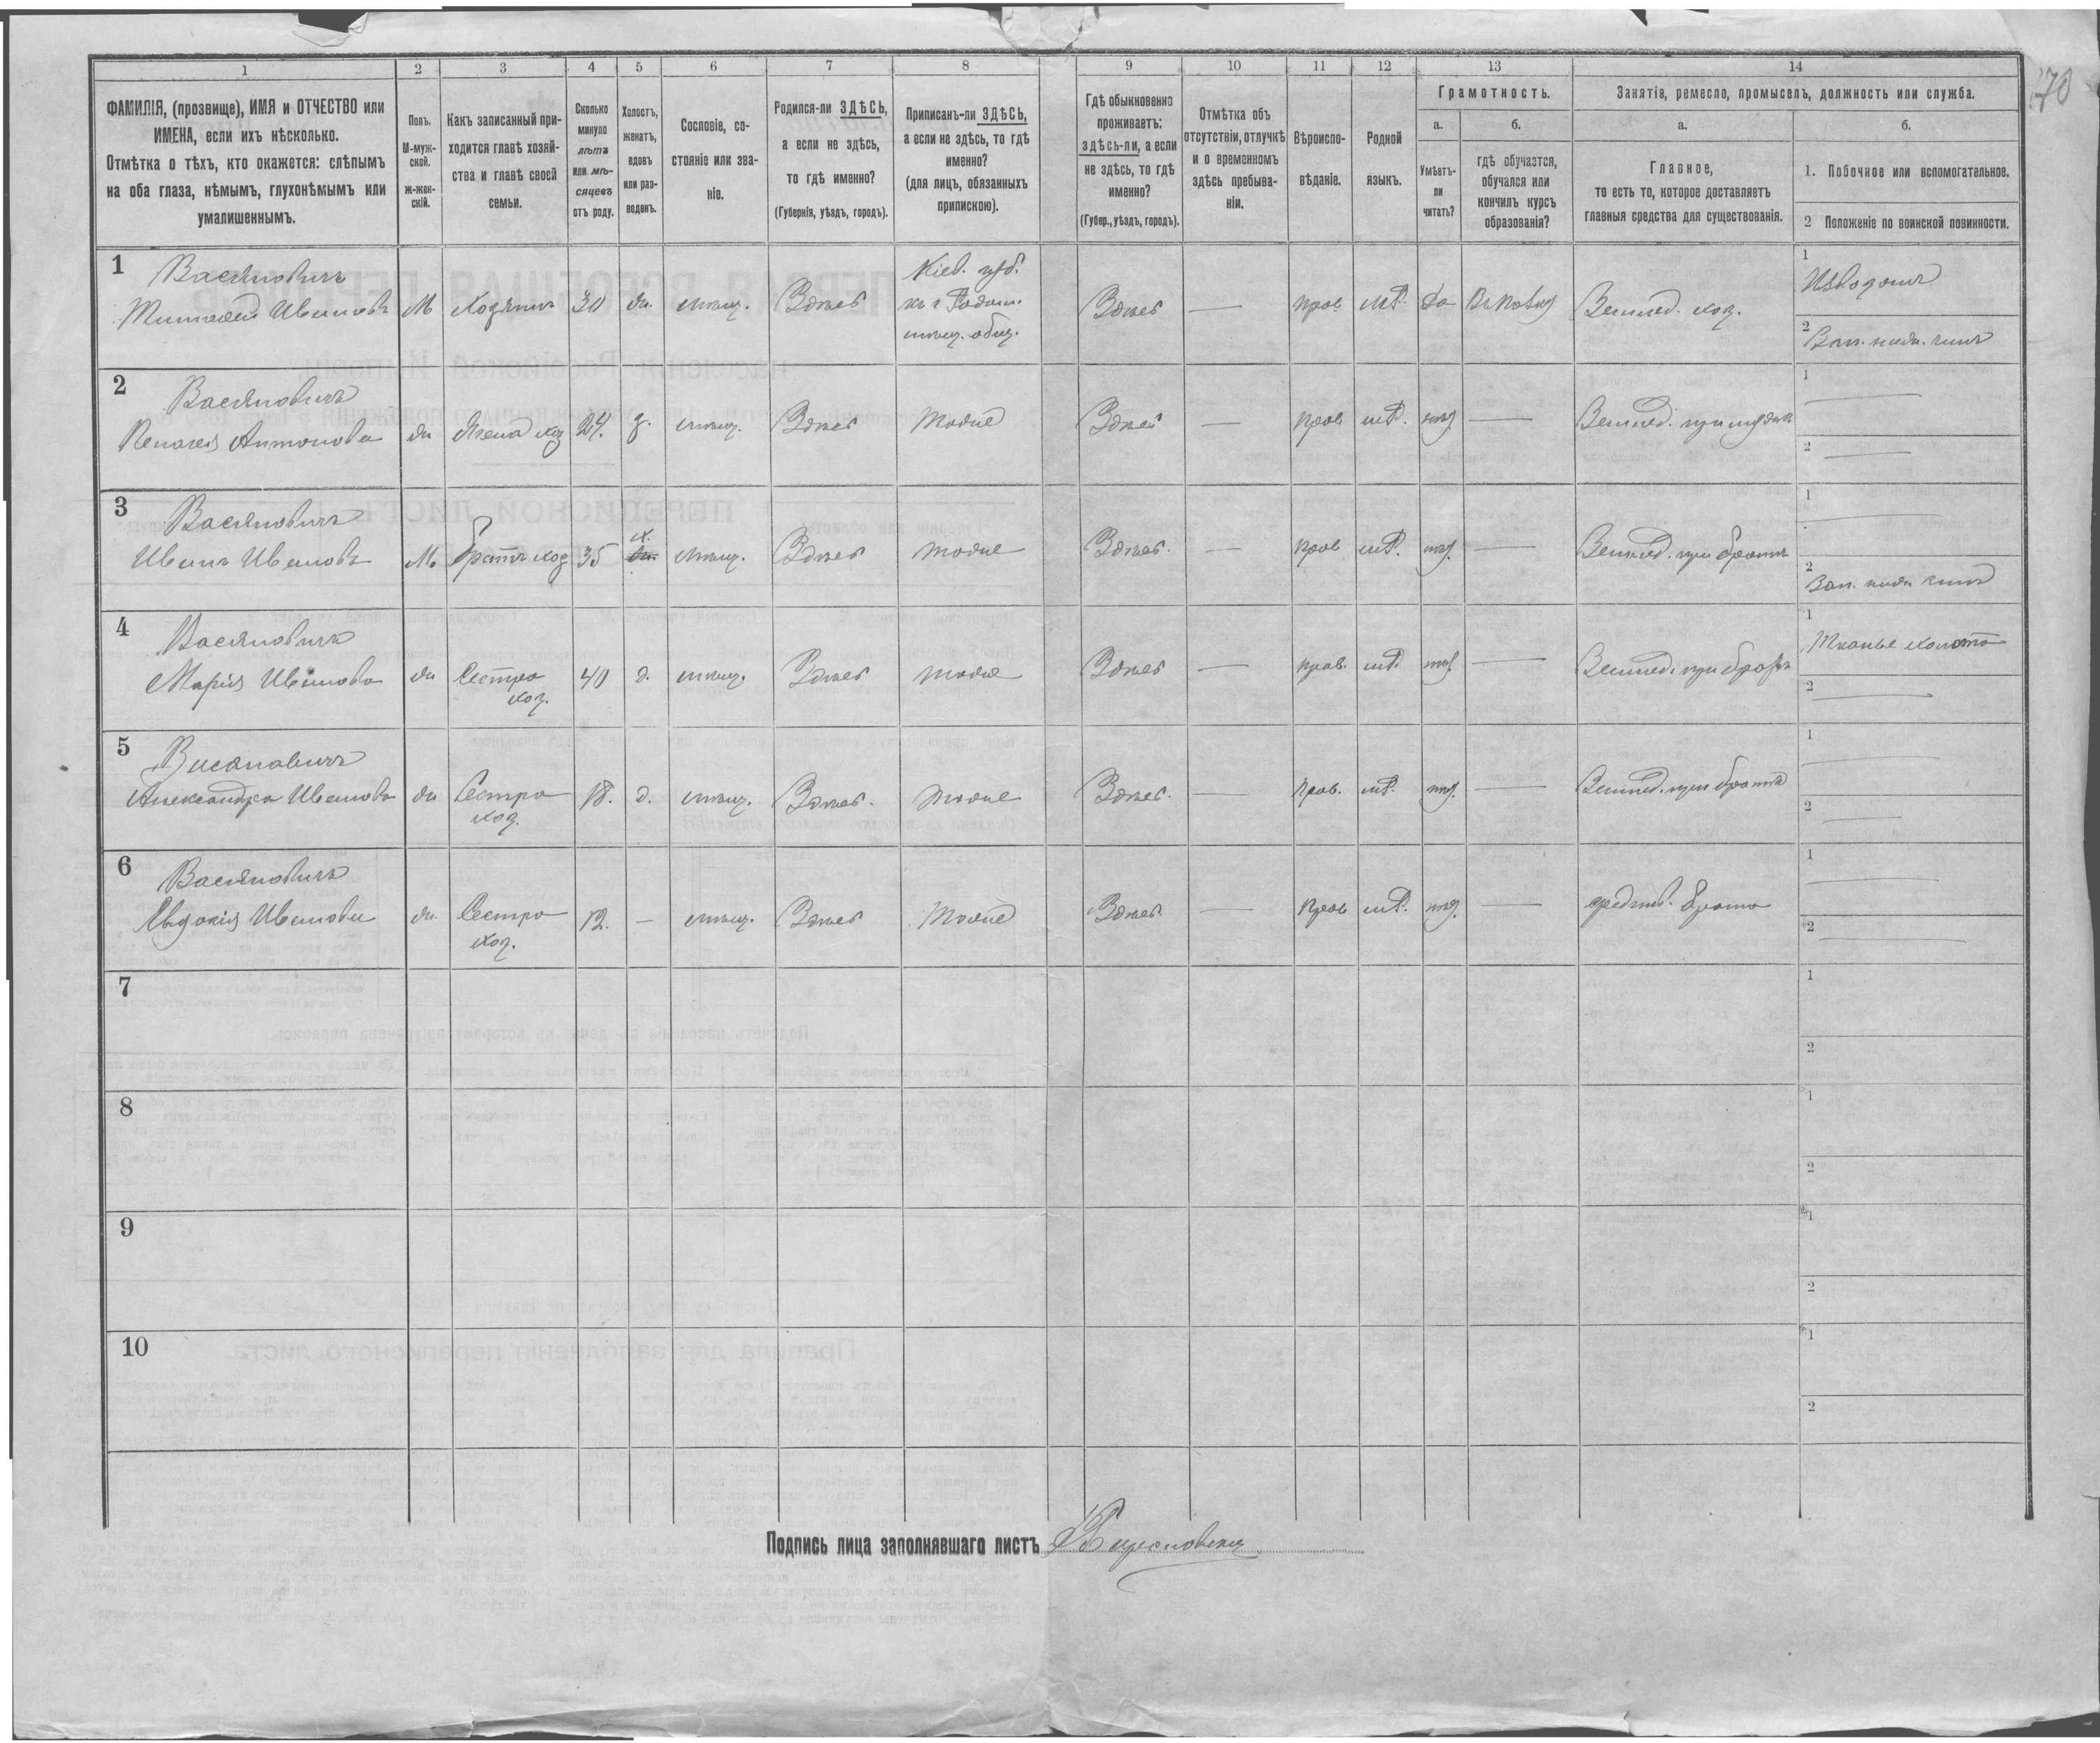 1 2 3 4 5 6 7 8 9 10 11 12 13 14
ФАМИЛІЯ, (прозвище), ИМЯ и ОТЧЕСТВО или
ИМЕНА, если ихъ нѣсколько.
Отмѣтка о тѣхъ, кто окажется: слѣпымъ
на оба глаза, нѣмымъ, глухонѣмымъ или
умалишеннымъ.
Полъ.
М-муж-
ской.
ж-жен-
скій.
Какъ записанный при-
ходится главѣ хозяй-
ства и главѣ своей
семьи.
Сколько
минуло
лѣтъ
или мѣ-
сяцевъ
отъ роду.
Холостъ,
женатъ,
вдовъ
или раз-
веденъ.
Сословіе, со-
стояніе или зва-
ніе.
Родился-ли ЗДѢСЬ,
а если не здѣсь,
то гдѣ именно?
(Губернія, уѣздъ, городъ).
Приписанъ-ли ЗДѢСЬ,
а если не здѣсь, то гдѣ
именно?
(для лицъ, обязанныхъ
припискою).
Гдѣ обыкновенно
проживаетъ:
здѣсь-ли, а если
не здѣсь, то гдѣ
именно?
(Губер., уѣздъ, городъ).
Отмѣтка объ
отсутствіи, отлучкѣ
и о временномъ
здѣсь пребыва-
ніи.
Вѣроиспо-
вѣданіе.
Родной
языкъ.
Грамотность.
а.
Умѣетъ-
ли
читать?
б.
гдѣ обучается,
обучался или
кончилъ курсъ
образованія?
Занятіе, ремесло, промыселъ, должность или служба.
а.
Главное,
то есть то, которое доставляетъ
главныя средства для существованія.
б.
1. Побочное или вспомогательное.
2 Положеніе по воинской повинности.
70
1
Васяновичъ
Тимофей Ивановъ М Хозяинъ 30 ж. мѣщ. Здѣсь
Кіев. губ.
къ г Радом.
мѣщ. общ.
Здѣсь — прав. да Землед. хоз.
1 Извозомъ
2 Зап. нижн. чинъ
2
Васяновичъ
Антонова ж Жена хоз 24. з. мѣщ. Здѣсь Тоже Здѣсь — прав нѣт — Землед. при мужѣ
1
2 —
3
Васяновичъ
Иванъ Ивановъ М Братъ хоз 35 х. мѣщ. Здѣсь тоже Здѣсь — прав нѣт — Землед. при братѣ
1 —
2 Зап. нижн чинъ
4
Васяновичъ
Марія Иванова ж Сестра
хоз.
40 д. мѣщ. Здѣсь тоже Здѣсь — прав. нѣт — Землед. при братѣ
1 Тканье холста
2 —
5
Васяновичъ
Александра Иванова ж Сестра
хоз.
18. д. мѣщ. Здѣсь. тоже Здѣсь. — прав. нѣт — Землед. при братѣ
1 —
2 —
6
Васяновичъ
Евдокія Иванова ж. Сестра
хоз.
12. — мѣщ. Здѣсь Тоже Здѣсь — прав нѣт — средств. брата
1 —
2 —
7
1
2
8
1
2
9
1
2
10
1
2
Подпись лица заполнявшаго листъ